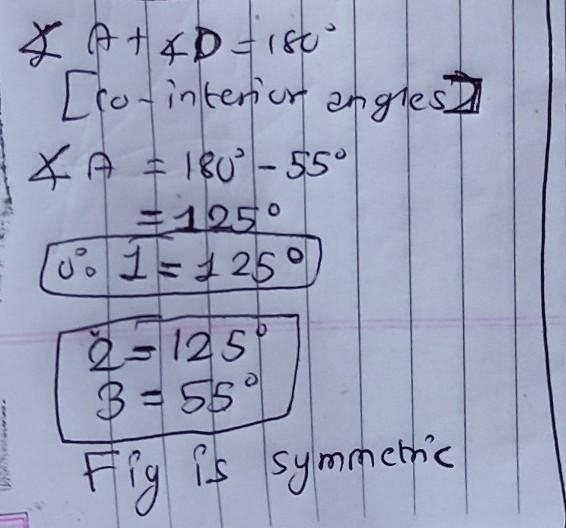 ∡ A + ∡D = 180°
[Co-interior angles]
∡ A = 180° - 55°
= 125°
∴ 1 = 125°
2 = 125°
3 = 55°
Fig is symmetric